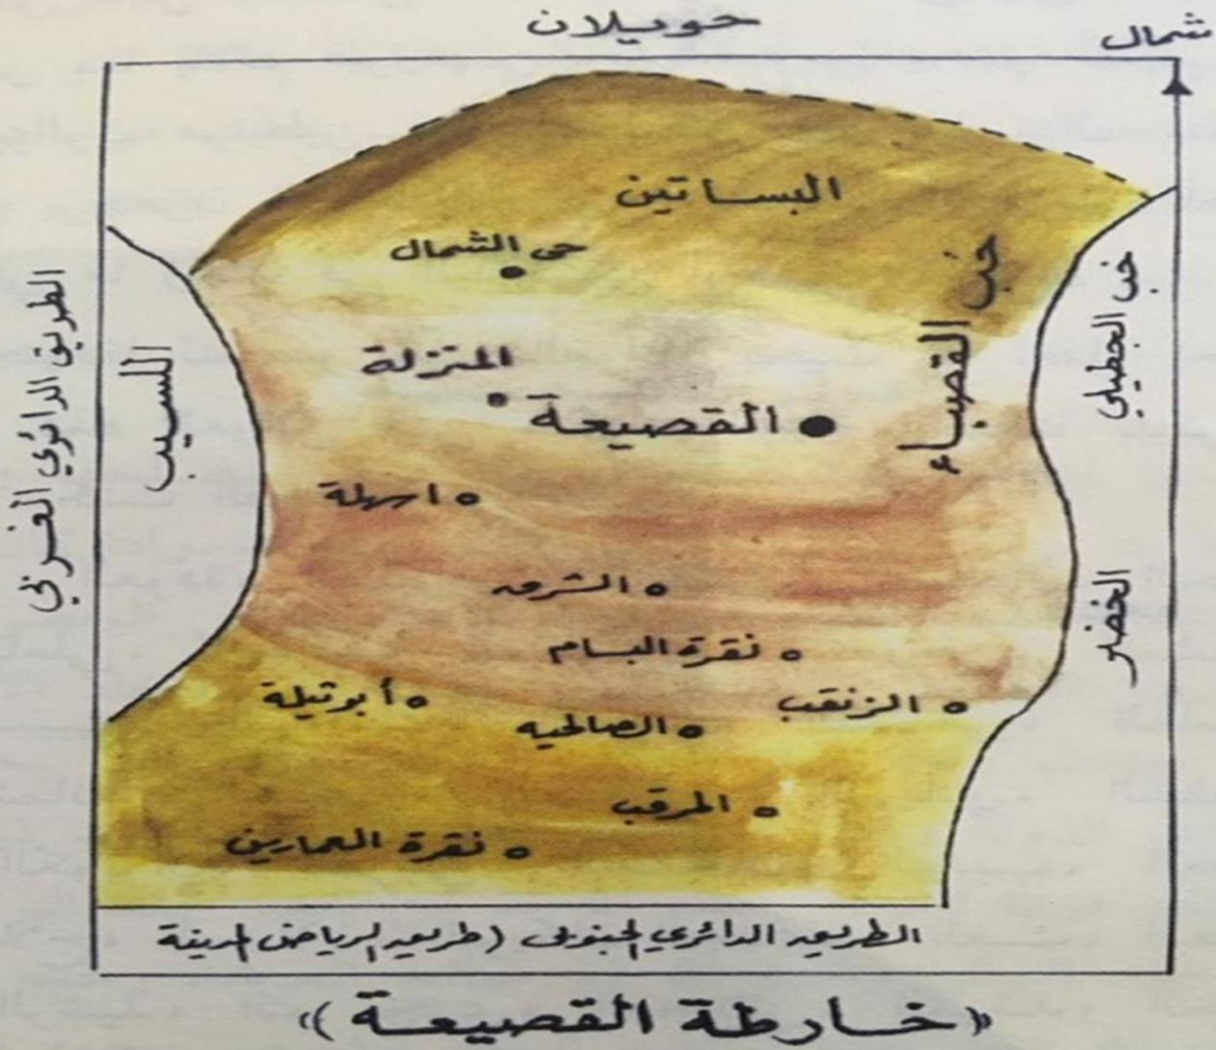 حويلان
شمال
البساتين
حي الشمال
خب القصباء
خب الجطيلي
الطريق الدائري الغربي
اللسيب
المنزلة
القصيعة
اسهلة
الشرق
الخضر
نقرة البسام
أبوتيلة
الزنقب
الصالحيه
المرقب
نقرة العمارين
الطريق الدائري الجنوبي (طريق الرياض المدينة
«خارطة القصيعة»